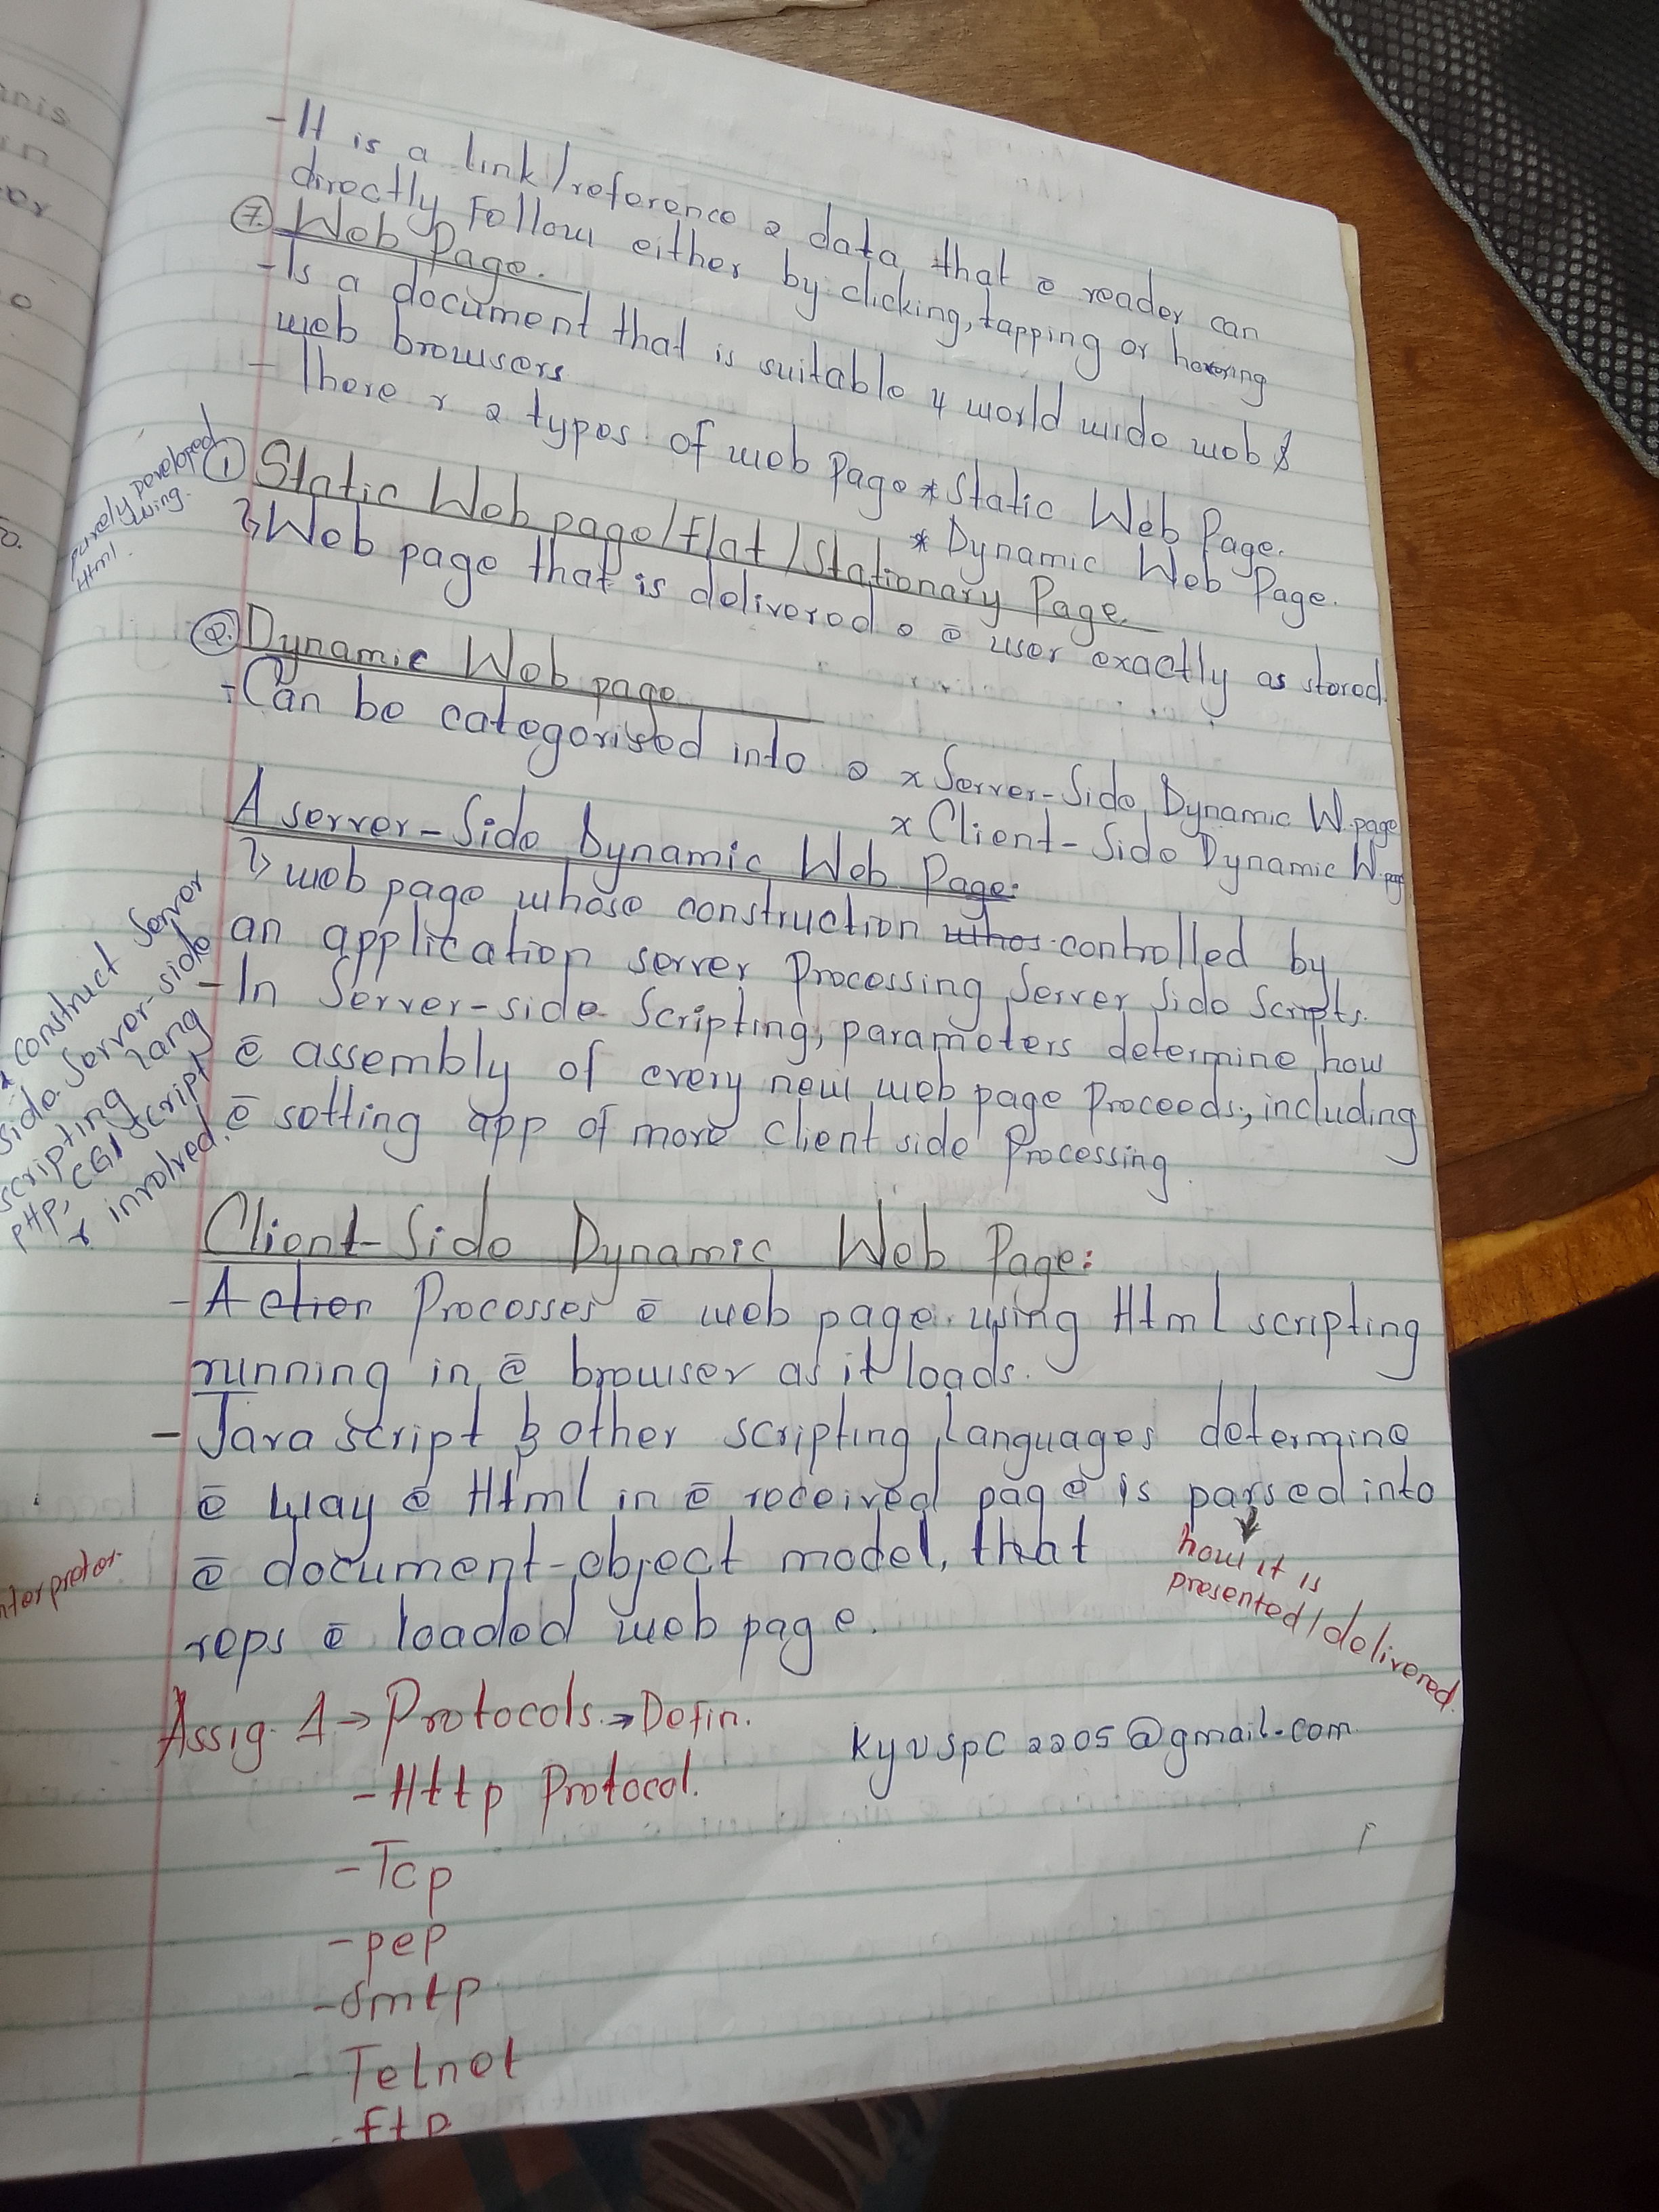 - It is a link/reference 2 data that ē reader can
directly Follow either by clicking, tapping or hovering
7. Web Page.
- Is a document that is suitable 4 world wide web &
web browsers
- There r 2 types of web page * Static Web Page.
* Dynamic Web Page.
① Static Web page/flat/Stationary Page.
purely developed
using
Html.
↳ Web page that is delivered o ē user exactly as stored.
②. Dynamic Web page
- Can be categorised into o x Server-Side Dynamic W.page
x Client-Side Dynamic W.page
A server-Side Dynamic Web Page:
↳ web page whose construction controlled by
an application server Processing Server Side Scripts.
- In Server-side Scripting, parameters determine how
ē assembly of every new web page Proceeds, including
ē setting app of more client side Processing.
* construct Server
side Server-side
scripting lang
PHP, CGI script
r involved.
Client-Side Dynamic Web Page:
- Action Processes ē web page using Html scripting
running in ē browser as it loads.
- Java script & other scripting languages determine
ē way ē Html in ē received page is parsed into
ē document-object model, that
how it is
presented/delivered.
reps ē loaded web page.
nterpreter
Assig. 1 → Protocols → Defin.
kyuspc2205@gmail.com
- Http Protocol.
- Tcp
- pep
- Smtp
- Telnet
- ftp